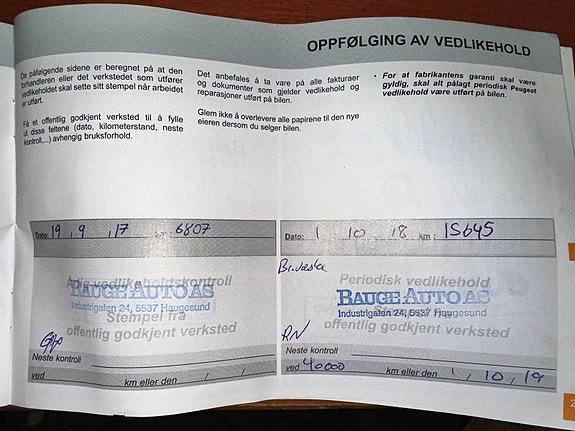 OPPFØLGING AV VEDLIKEHOLD
De påfølgende sidene er beregnet på at den
forhandleren eller det verkstedet som utfører
vedlikeholdet skal sette sitt stempel når arbeidet
er utført.
Få et offentlig godkjent verksted til å fylle
ut disse feltene (dato, kilometerstand, neste
kontroll,...) avhengig bruksforhold.
Det anbefales å ta vare på alle fakturaer
og dokumenter som gjelder vedlikehold og
reparasjoner utført på bilen.
Glem ikke å overlevere alle papirene til den nye
eieren dersom du selger bilen.
• For at fabrikantens garanti skal være
gyldig, skal alt pålagt periodisk Peugeot
vedlikehold være utført på bilen.
Dato: 19 , 9 , 17 km : 6807
vedlikeholdskontroll
BAUGE AUTO AS
Industrigaten 24, 5537 Haugesund
Stempel fra
offentlig godkjent verksted
Neste kontroll
ved km eller den / /
Dato: 1 10 18 km : 15645
Br.væske
Periodisk vedlikehold
BAUGE AUTO AS
Industrigaten 24, 5537 Haugesund
Stempel fra
offentlig godkjent verksted
RN
Neste kontroll
ved 40000 km eller den 1 / 10 / 19
2